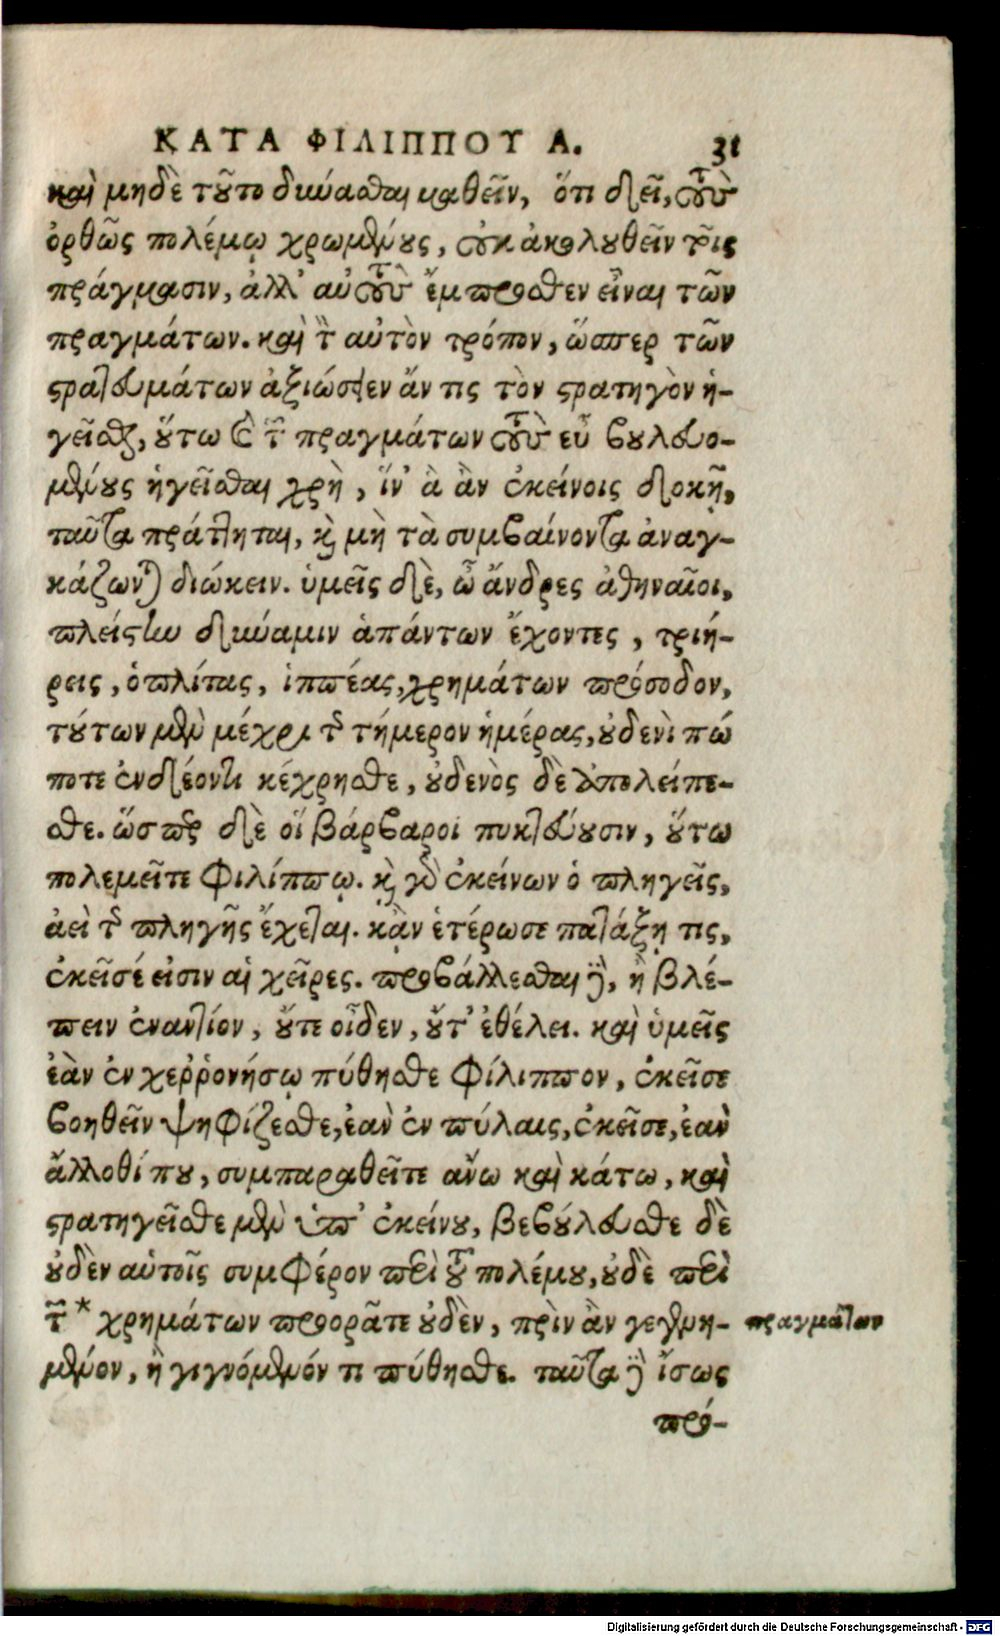 ΚΑΤΑ ΦΙΛΙΠΠΟΥ Α. 31
καὶ μηδὲ τοῦτο δύνασθαι μαθεῖν, ὅτι δεῖ, τοὺς
ὀρθῶς πολέμῳ χρωμένους, οὐκ ἀκολουθεῖν τοῖς
πράγμασιν, ἀλλ' αὐτοὺς ἔμπροσθεν εἶναι τῶν
πραγμάτων. καὶ τὸν αὐτὸν τρόπον, ὥσπερ τῶν
στρατευμάτων ἀξιώσειεν ἄν τις τὸν στρατηγὸν ἡ-
γεῖσθαι, οὕτω καὶ τῶν πραγμάτων τοὺς εὖ βουλευο-
μένους ἡγεῖσθαι χρὴ, ἵν' ἃ ἂν ἐκείνοις δοκῇ,
ταῦτα πράττηται, καὶ μὴ τὰ συμβαίνοντα ἀναγ-
κάζωνται διώκειν. ὑμεῖς δὲ, ὦ ἄνδρες ἀθηναῖοι,
πλείστην δύναμιν ἁπάντων ἔχοντες, τριή-
ρεις, ὁπλίτας, ἱππέας, χρημάτων πρόσοδον,
τούτων μὲν μέχρι τῆς τήμερον ἡμέρας, οὐδενὶ πώ
ποτε ἐν δέοντι κέχρησθε, οὐδενὸς δὲ ἀπολείπε-
σθε. ὥσπερ δὲ οἱ βάρβαροι πυκτεύουσιν, οὕτω
πολεμεῖτε Φιλίππῳ. καὶ γὰρ ἐκείνων ὁ πληγεὶς,
ἀεὶ τῆς πληγῆς ἔχεται. κἂν ἑτέρωσε πατάξῃ τις,
ἐκεῖσέ εἰσιν αἱ χεῖρες. προβάλλεσθαι δ', ἢ βλέ-
πειν ἐναντίον, οὔτε οἶδεν, οὔτ' ἐθέλει. καὶ ὑμεῖς
ἐὰν ἐν χερρονήσῳ πύθησθε Φίλιππον, ἐκεῖσε
βοηθεῖν ψηφίζεσθε, ἐὰν ἐν πύλαις, ἐκεῖσε, ἐὰν
ἄλλοθί που, συμπαραθεῖτε ἄνω καὶ κάτω, καὶ
στρατηγεῖσθε μὲν ὑπ' ἐκείνου, βεβούλευσθε δὲ
οὐδὲν αὐτοῖς συμφέρον περὶ τοῦ πολέμου, οὐδὲ περὶ
τῶν * χρημάτων προορᾶτε οὐδὲν, πρὶν ἂν γεγενη-
πραγμάτων
μένον, ἢ γιγνόμενόν τι πύθησθε. ταῦτα δ' ἴσως
πρό-
Digitalisierung gefördert durch die Deutsche Forschungsgemeinschaft - DFG